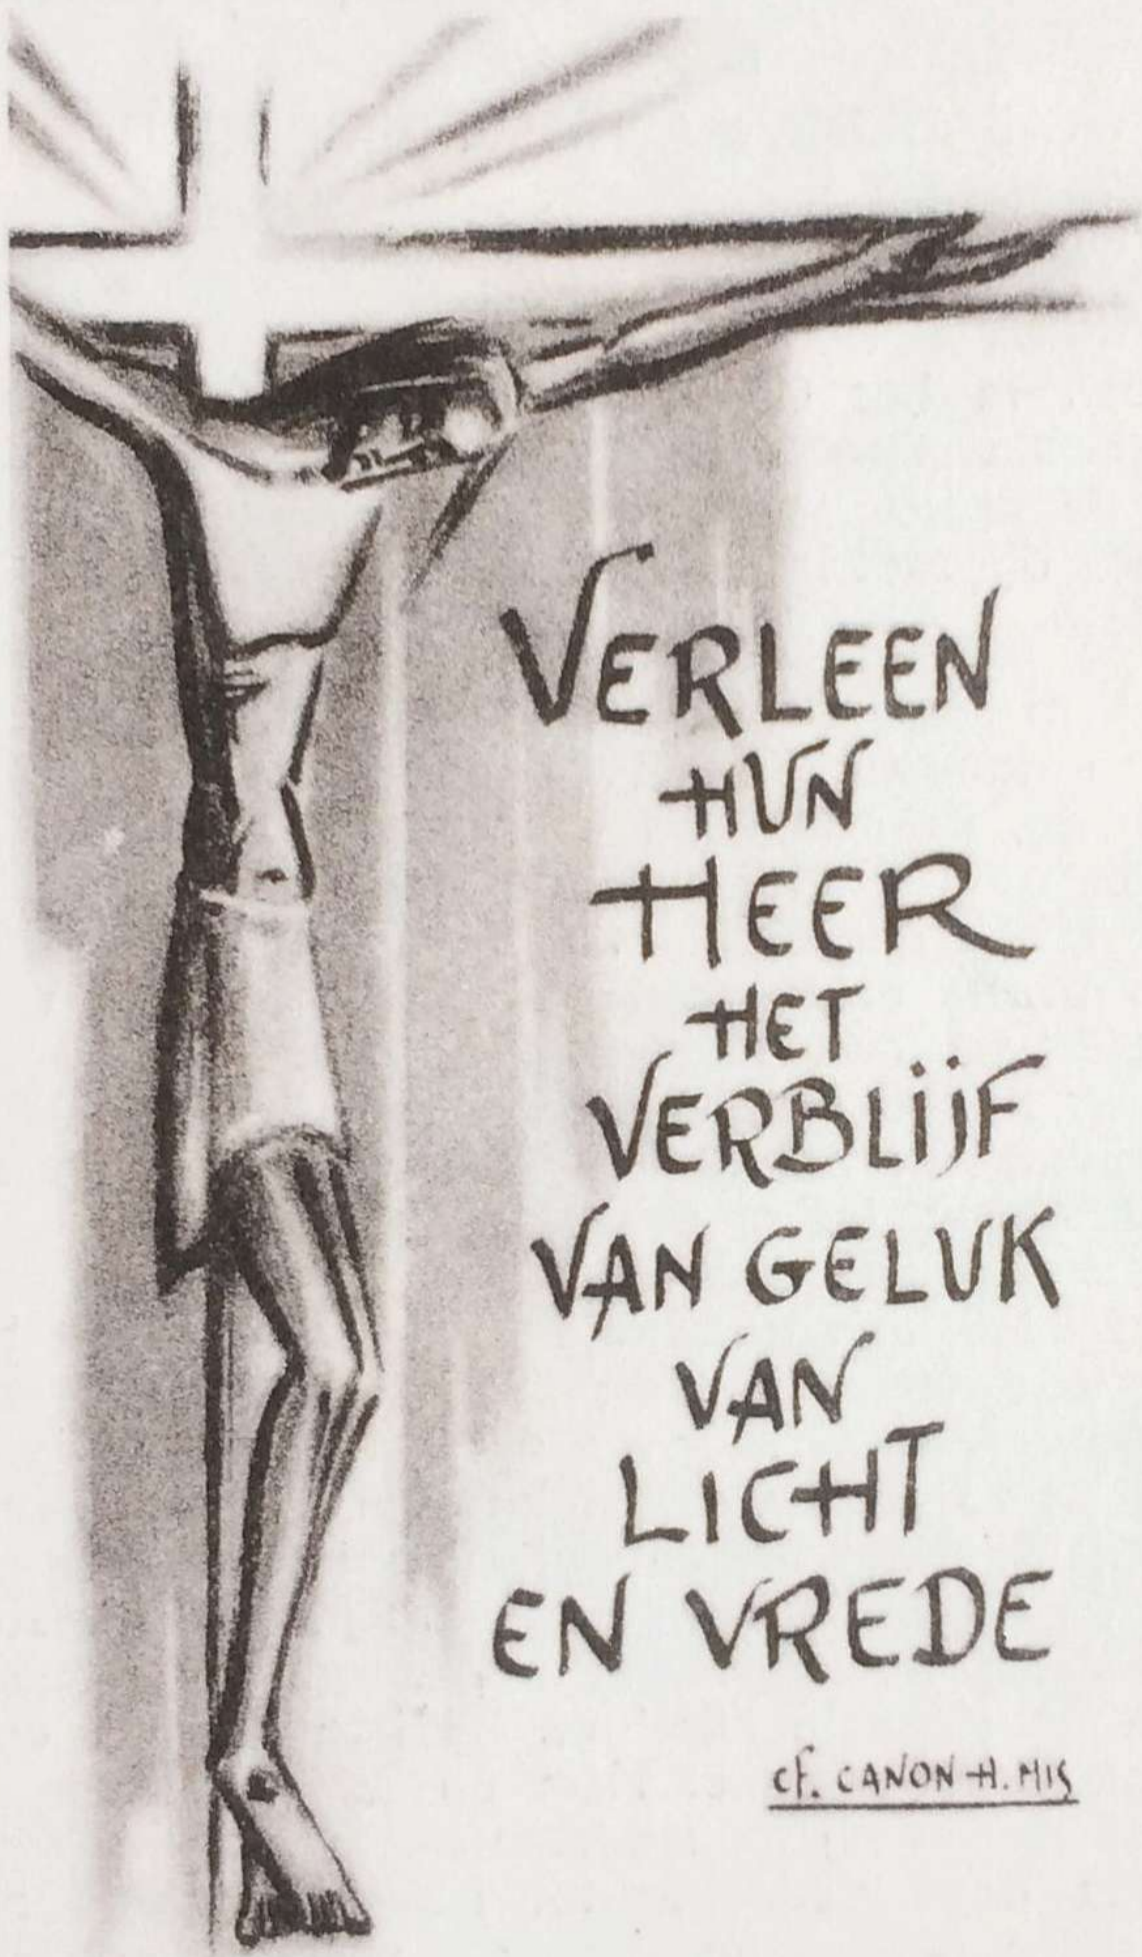 VERLEEN
HUN
HEER
HET
VERBLIJF
VAN GELUK
VAN
LICHT
EN VREDE
CF. CANON H. MIS